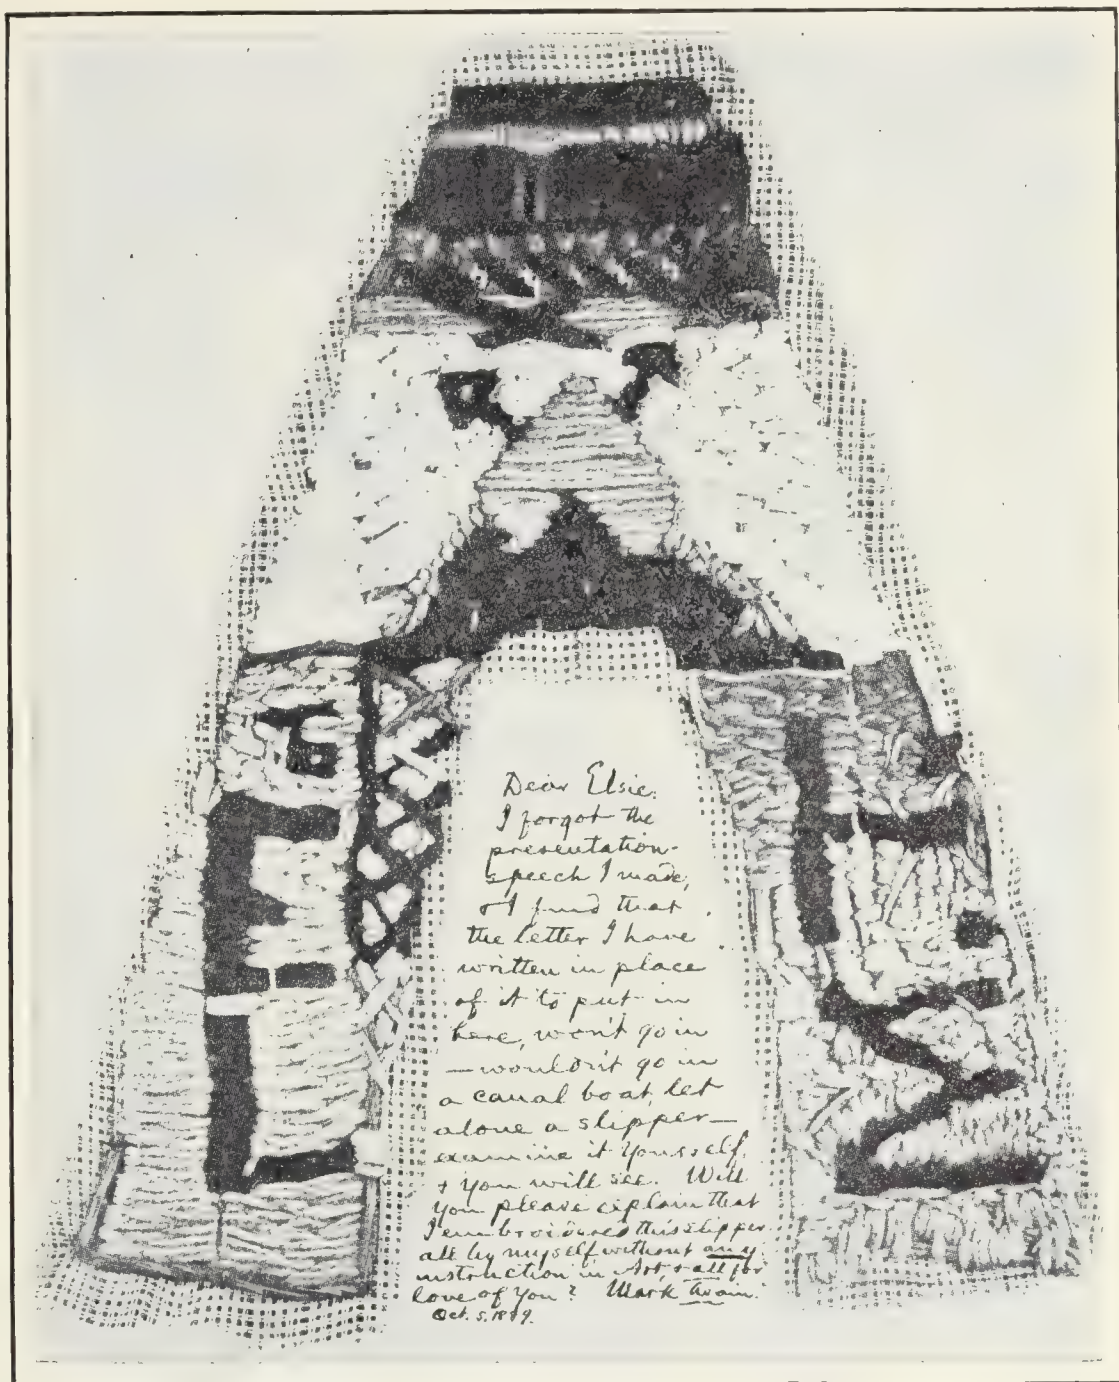 Dear Elsie:
I forgot the
presentation-
speech I made,
& I find that
the letter I have
written in place
of it to put in
here, won't go in
— wouldn't go in
a canal boat, let
alone a slipper—
examine it yourself,
& you will see. Will
you please explain that
I embroidered this slipper
all by myself without any
instruction in Art, & all for
love of you? Mark Twain.
Oct. 5, 1889.